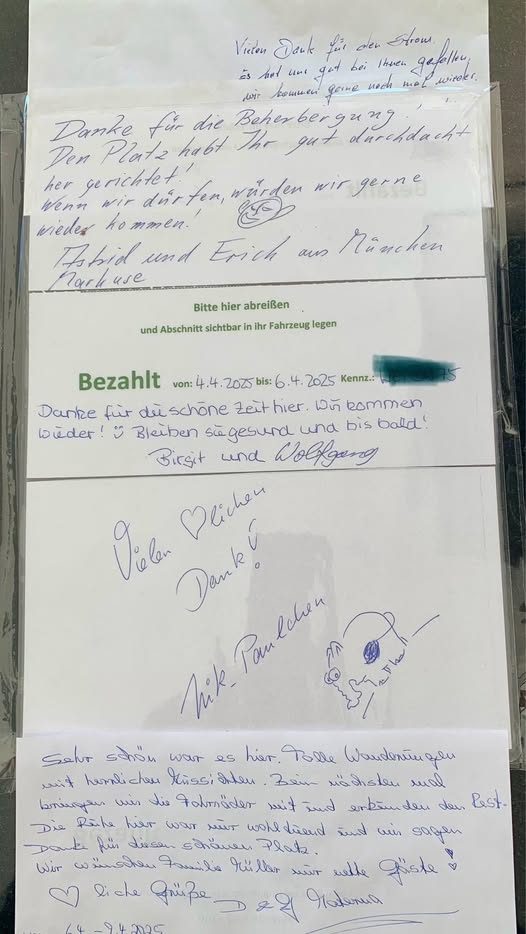 Vielen Dank für den Strom.
Es hat uns gut bei Ihnen gefallen,
wir kommen gerne noch mal wieder.
Danke für die Beherbergung!
Den Platz habt Ihr gut durchdacht
her gerichtet!
Wenn wir dürfen, würden wir gerne
wieder kommen!
Astrid und Erich aus München
Markuse
Bitte hier abreißen
und Abschnitt sichtbar in ihr Fahrzeug legen
Bezahlt von: 4.4.2025 bis: 6.4.2025 Kennz.:
Danke für die schöne Zeit hier. Wir kommen
wieder! Bleiben sie gesund und bis bald!
Birgit und Wolfgang
Vielen ♡lichen
Dank!
Paulchen
Sehr schön war es hier. Tolle Wanderungen
mit herrlichen Aussichten. Beim nächsten mal
bringen wir die Fahrräder mit und erkunden den Rest.
Die Ruhe hier war nur wohltuend und wir sagen
Danke für diesen schönen Platz.
Wir wünschen Familie Müller nur nette Gäste!
♡ liche Grüße D & G
6.4. - 9.4.2025